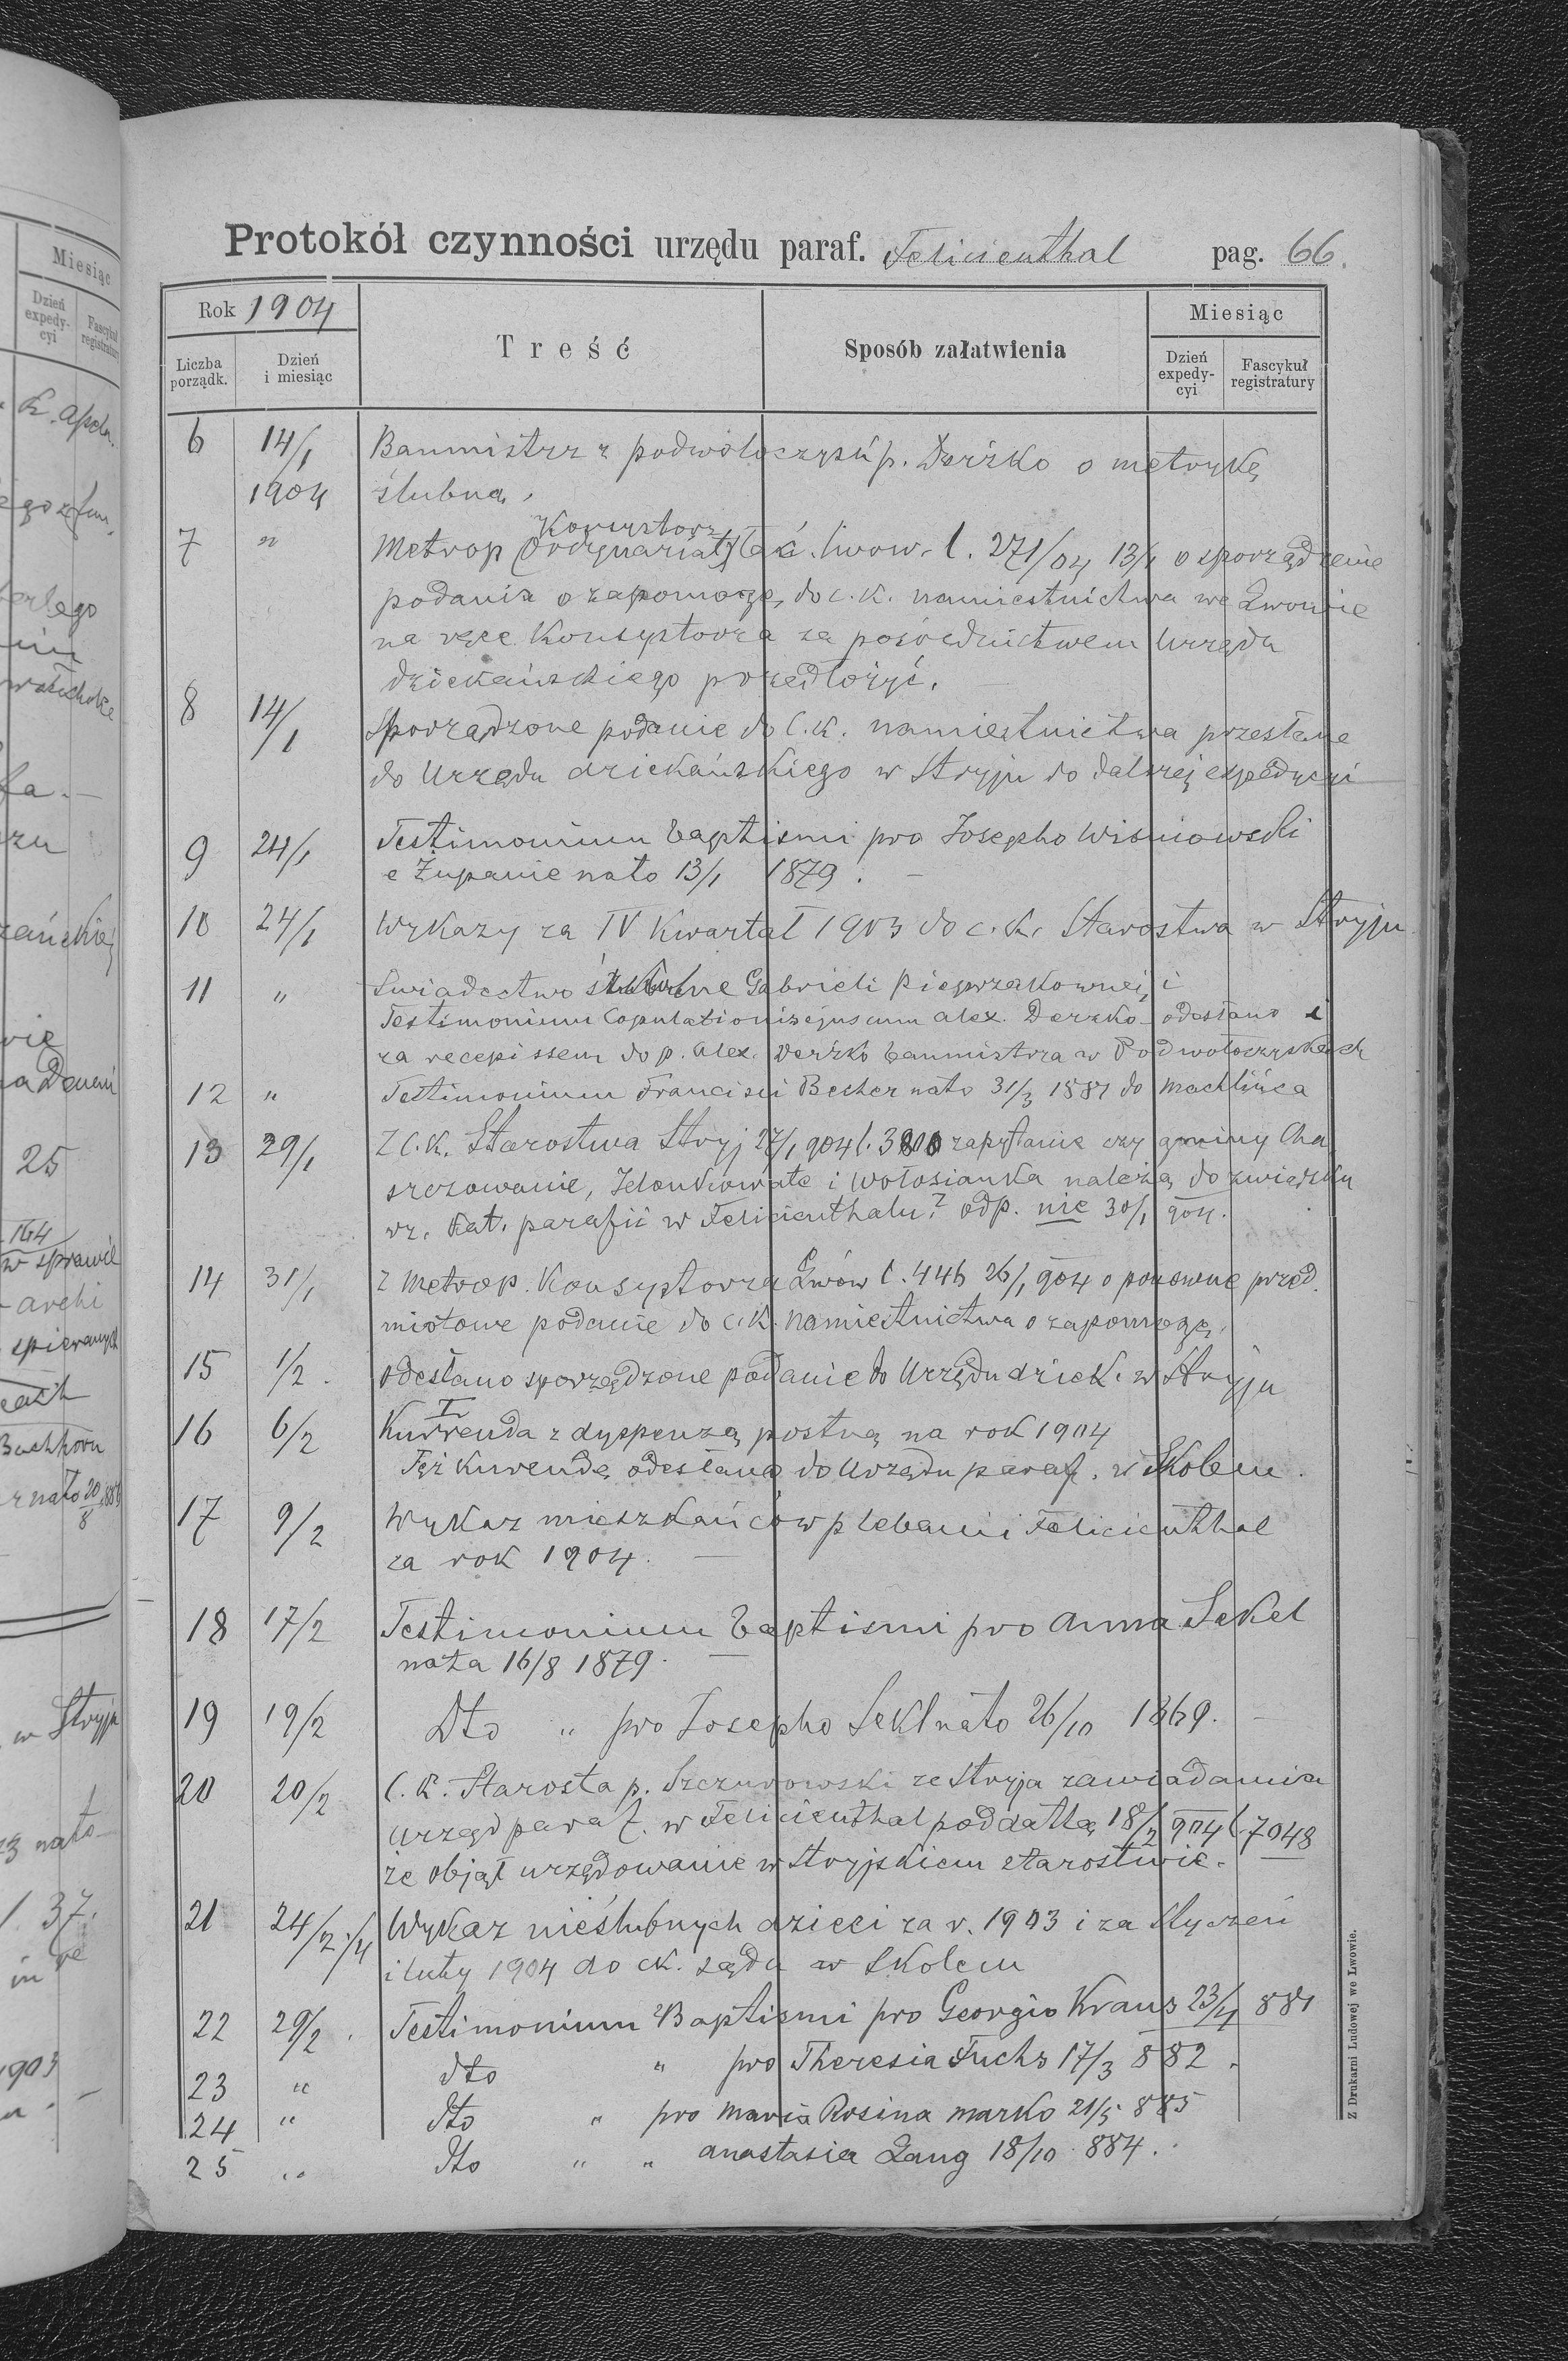 Protokół czynności urzędu paraf. Felicienthal pag. 66.
Rok 1904
Liczba porządk.
Dzień i miesiąc
Treść
Sposób załatwienia
Miesiąc
Dzień expedycyi
Fascykuł registratury
6 14/1 Banmistrz z podwołoczysk p. Derżko o metrykę
1904 ślubną,
Konsystorz
7 " Metrop (Ordynariat) łać. lwow. l. 271/04 13/1 o sporządzenie
podania o zapomogę, do c. k. namiestnictwa we Lwowie
na ręce Konsystorza za pośrednictwem Urzędu
dziekańskiego przedłożyć.
8 14/1 Sporządzone podanie do C. K. namiestnictwa przesłane
do Urzędu dziekańskiego w Stryju do dalszej expedycyi
9 24/1 Testimonium baptismi pro Josepho Wisniowski
e Żupanie nato 13/1 1879. —
10 24/1 Wykazy za IV Kwartał 1903 do c. k. Starostwa w Stryju
11 " Swiadectwo Gabrieli Piegwzakownej, i
Testimonium Copulationis ejus cum Alex. Derzko odesłano
za recepissem do p. Alex. Derżko banmistrza w Podwołoczyskach
12 " Testimonium Francisci Becher nato 31/3 1881 do Machlińca
13 29/1 Z C. K. Starostwa Stryj 27/1 904 l. zapytanie czy gminy Cha
szczowanie, Jelonkowate i Wołosianka należą do związku
rz. Kat. parafii w Felicienthalu? odp. nie 30/1 904.
14 31/1 Z Metrop. Konsystorza Lwów l. 446 26/1 904 o ponowne przed
miotowe podanie do C. K. Namiestnictwa o zapomogę.
15 1/2. Odesłano sporządzone podanie do Urzędu dziek. w Stryju
I
16 6/2 Kurrenda z dyspenzą postną na rok 1904
Też Kurendę odesłano do Urzędu paraf. w Skolem.
17 9/2 Wykaz mieszkańców plebanii Felicienthal
za rok 1904. —
18 17/2 Testimonium baptismi pro Anna Sekel
nata 16/8 1879. —
19 19/2 Dto " pro Josepho Sekl nato 26/10 1869. —
20 20/2 C. K. Starosta p. Szczurowski ze Stryja zawiadamia
Urząd paraf. w Felicienthal pod datką 18/2 904 l. 7048
że objął urzędowanie w Stryjskiem starostwie.
21 24/2 Wykaz nieślubnych dzieci za r. 1903 i za Styczeń
i luty 1904 do ck. sądu w Skolem
22 29/2. Testimonium Baptismi pro Georgio Kraus 23/4 881
23 " dto " pro Theresia Fuchs 17/3 882.
24 " dto " pro Maria Rosina Marko 21/5 885
25 " dto " " Anastasia Lang 18/10 884.
Z Drukarni Ludowej we Lwowie.
Miesiąc
Dzień expedycyi
Fascykuł registratury
25
164
w sprawie
w Stryju
nato
l. 37.
1903